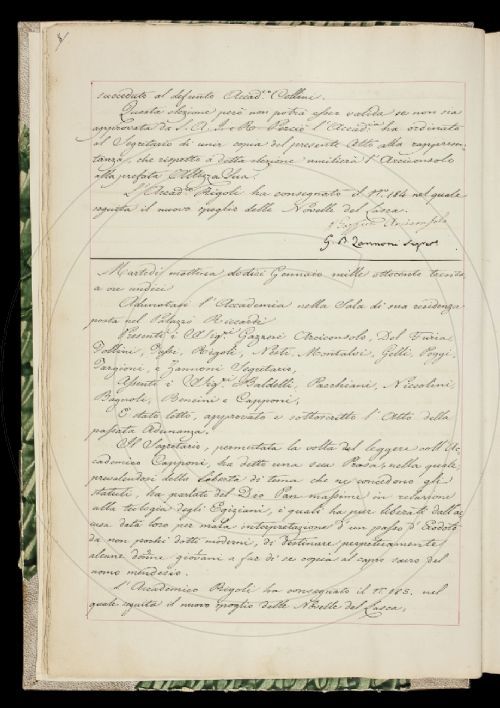 succeduto al defunto Accad.co Collini.
Questa elezione però non potrà esser valida se non sia
approvata da S. A. I. e R. Perciò l'Accad.a ha ordinato
al Segretario di unir copia del presente Atto alla rappresen-
tanza, che rispetto a detta elezione umilierà l'Arciconsolo
alla prefata Altezza Sua.
L'Accad.co Rigoli ha consegnato il N.o 184 nel quale
seguita il nuovo spoglio delle Novelle del Lasca.
Arciconsolo
G. B. Zannoni Segret.
Martedì mattina dodici Gennaio mille ottocento trenta
a ore undici
Adunatasi l'Accademia nella Sala di sua residenza
posta nel Palazzo Riccardi
Presenti i Sig.ri Gazzeri Arciconsolo, Del Furia
Follini, Papi, Rigoli, Nesti, Montalvi, Gelli, Poggi,
Targioni, e Zannoni Segretario,
Assenti i Sig.ri Baldelli, Pacchiani, Niccolini,
Bagnoli, Bencini e Capponi,
È stato letto, approvato e sottoscritto l'Atto della
passata Adunanza.
Il Segretario, permutata la volta del leggere coll'Ac-
cademico Capponi, ha detto una sua Prosa, nella quale
prevalendosi della libertà di tema che ne concedono gli
statuti, ha parlato del Dio Pan massime in relazione
alla teologia degli Egiziani, i quali ha pur liberati dall'ac
cusa data loro per mala interpretazione d'un passo d'Erodoto
da non pochi dotti moderni, di destinare perpetuamente
alcune donne giovani a far di se copia al capro sacro del
nomo mendesio.
L'Accademico Rigoli ha consegnato il N.o 185. nel
quale seguita il nuovo spoglio delle Novelle del Lasca.